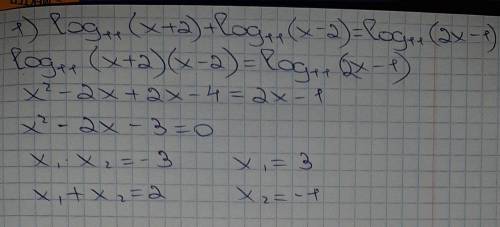 1) log₁₁(x+2)+log₁₁(x-2)=log₁₁(2x-1)
log₁₁(x+2)(x-2)=log₁₁(2x-1)
x²-2x+2x-4=2x-1
x²-2x-3=0
x₁·x₂=-3 x₁=3
x₁+x₂=2 x₂=-1